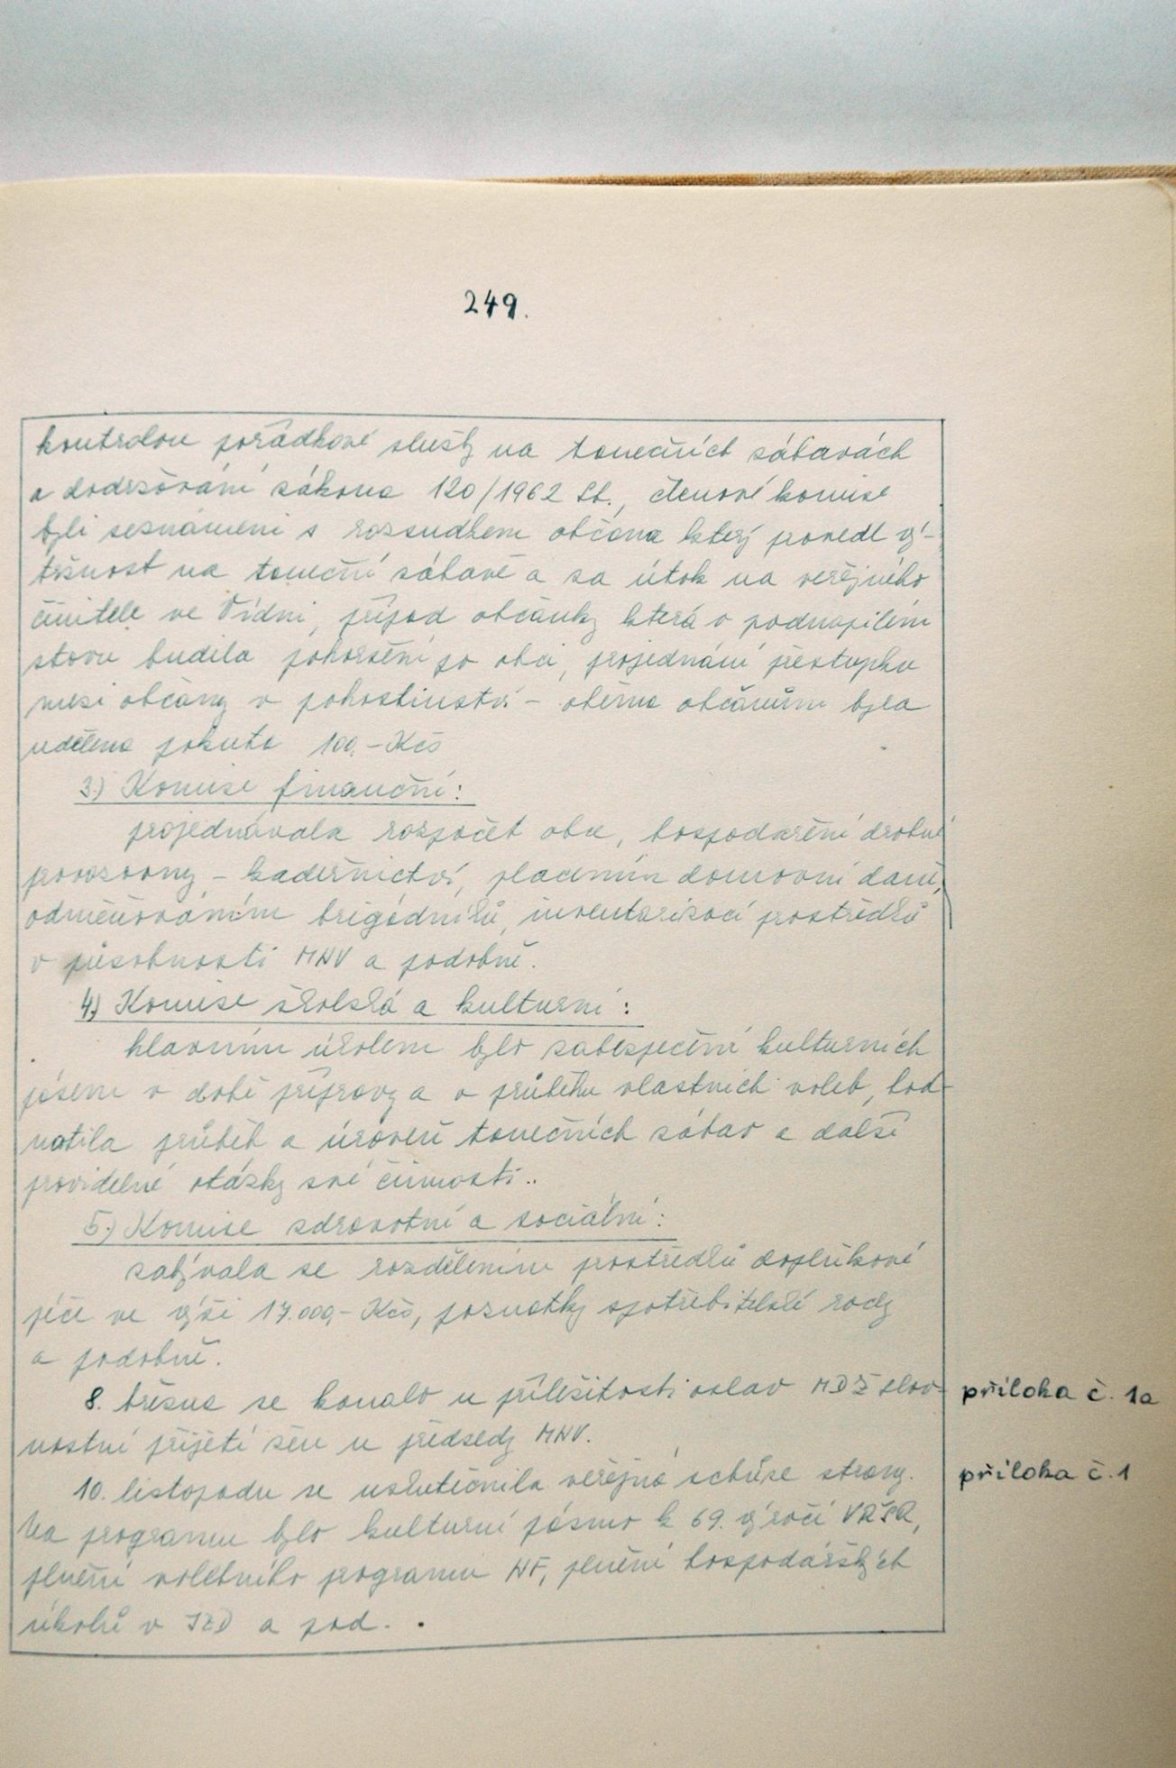 249.
kontrolou pořádkové služby na tanečních zábavách
a dodržování zákona 120/1962 Sb., členové komise
byli seznámeni s rozsudkem občana který provedl vý-
tržnost na taneční zábavě a za útok na veřejného
činitele ve Vídni, případ občanky která v podnapilém
stavu budila pohoršení po obci, projednání přestupku
mezi občany v pohostinství - oběma občanům byla
udělena pokuta 100,- Kčs
3.) Komise finanční:
projednávala rozpočet obce, hospodaření drobné
provozovny - kadeřnictví, placením domovní daně,
odměňováním brigádníků, inventarizací prostředků
v působnosti MNV a podobně.
4.) Komise školská a kulturní:
hlavním úkolem bylo zabezpečení kulturních
pásem v době přípravy a v průběhu vlastních voleb, hod-
notila průběh a úroveň tanečních zábav a další
pravidelné otázky své činnosti..
5.) Komise zdravotní a sociální:
zabývala se rozdělením prostředků doplňkové
péče ve výši 17.000,- Kčs, poznatky spotřebitelské rady
a podobně.
8. března se konalo u příležitosti oslav MDŽ slav- příloha č. 1a
nostní přijetí žen u předsedy MNV.
10. listopadu se uskutečnila veřejná schůze strany. příloha č. 1
Na programu bylo kulturní pásmo k 69. výročí VŘSR,
plnění volebního programu NF, plnění hospodářských
úkolů v JZD a pod.